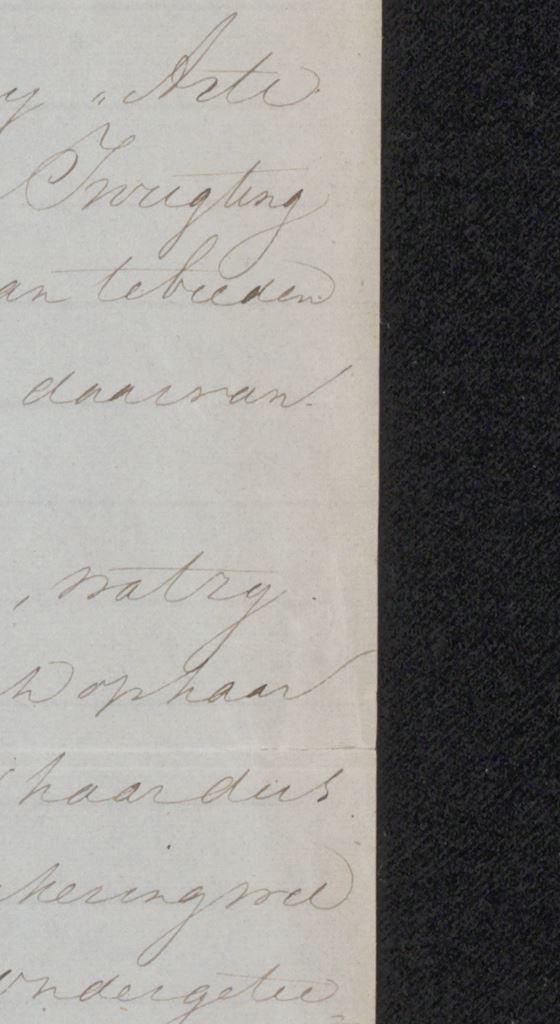 y „Arti
Inrigting
an tebieden
daarvan.
, wat zy
h op haar
haar dus
kering wel
ondergetee„